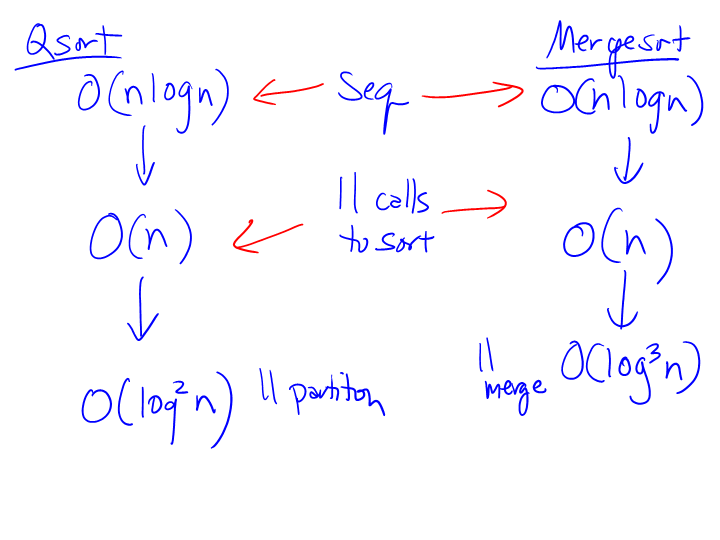 Qsort
Mergesort
O(nlogn) ← Seq → O(nlogn)
↓ ↓
O(n) ← || calls to sort → O(n)
↓ ↓
O(log²n) || partiton
|| merge O(log³n)